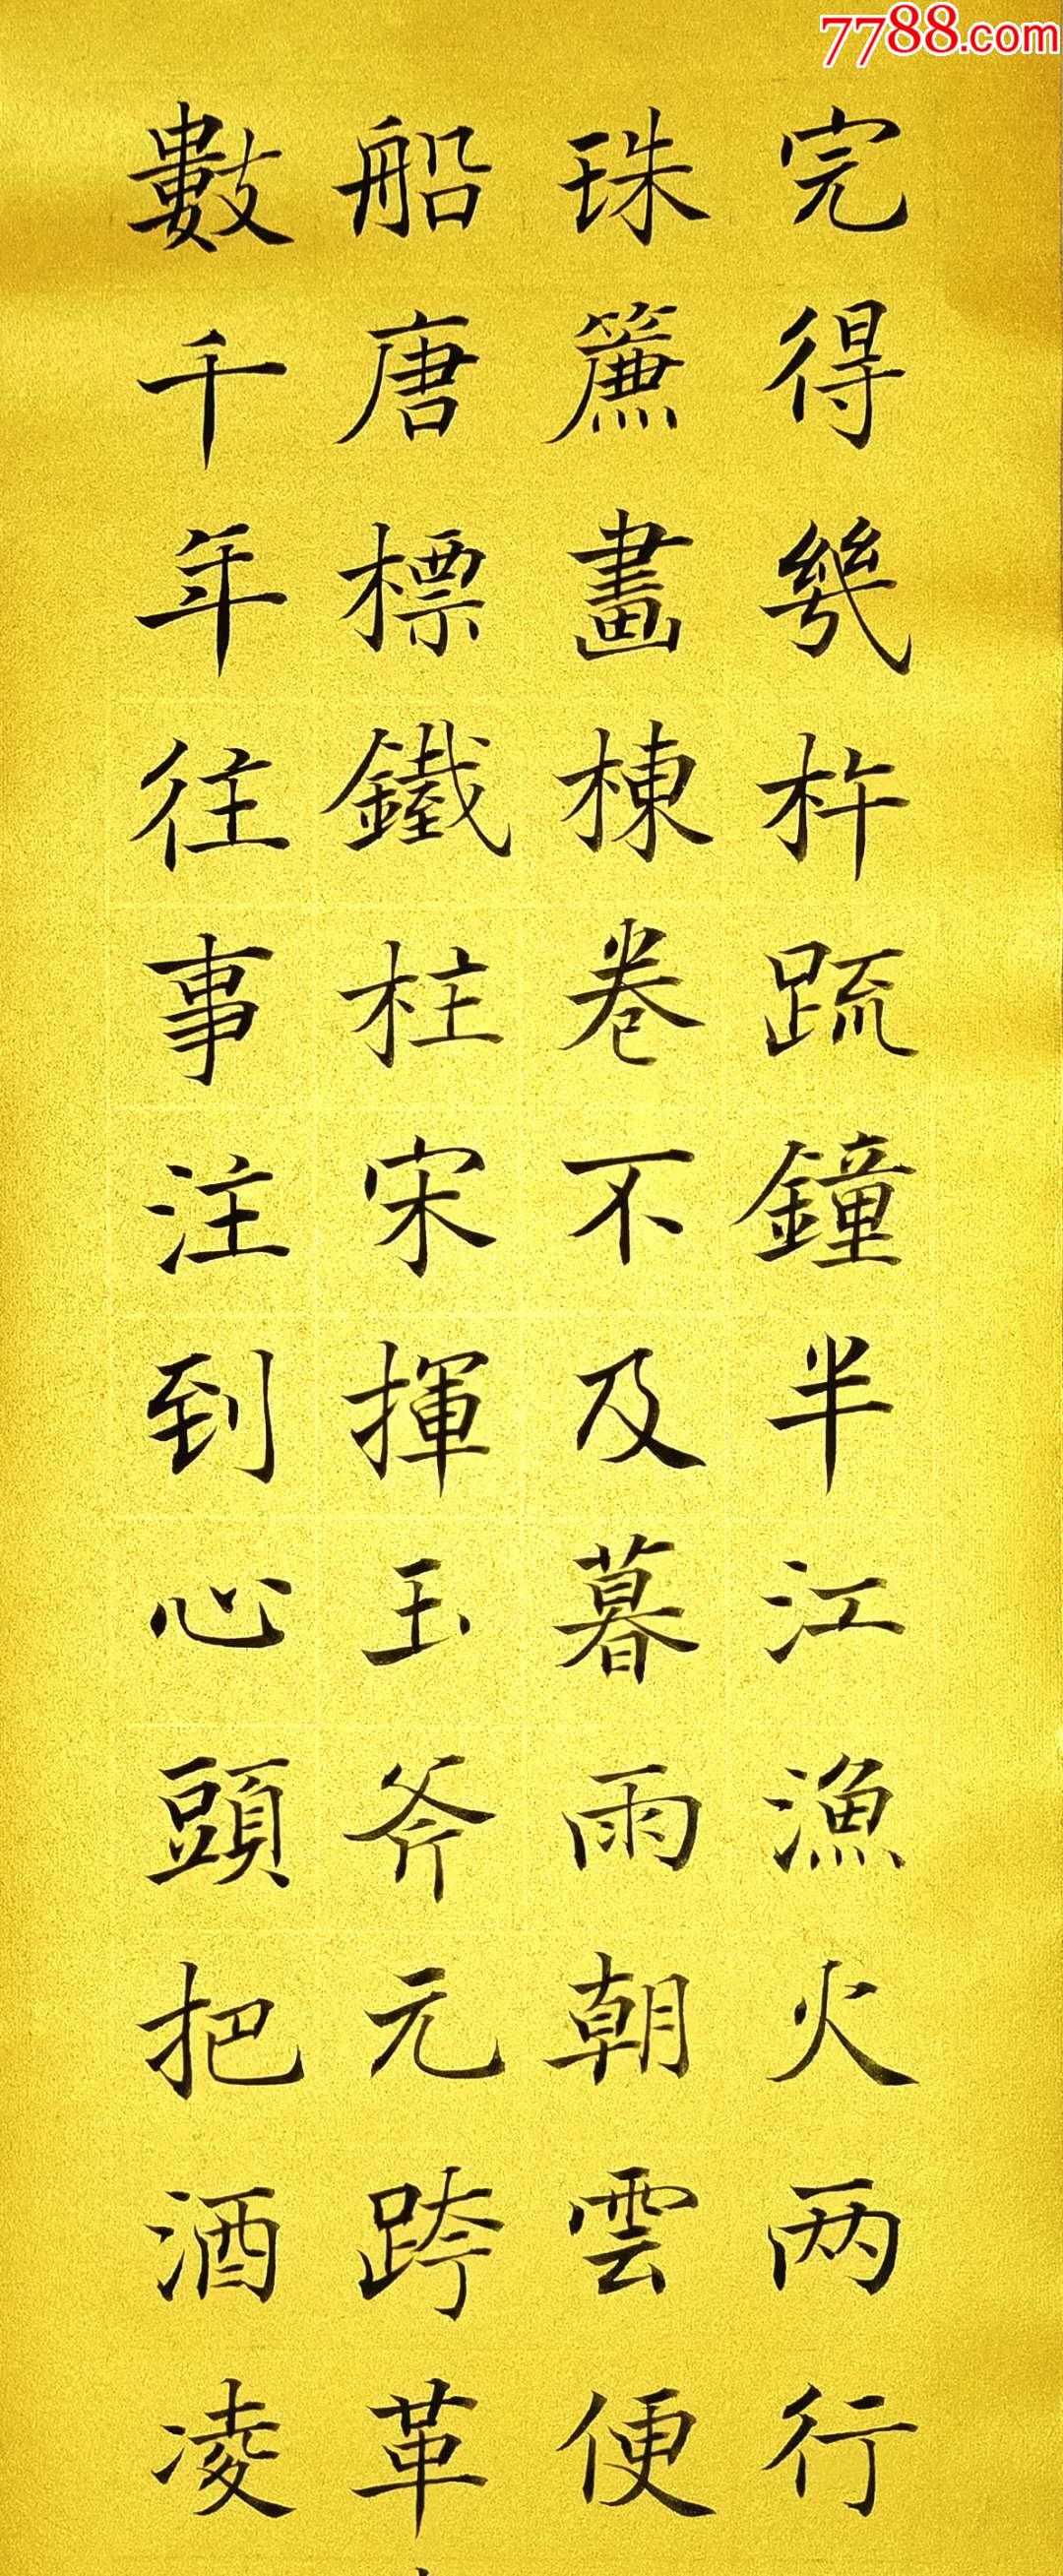 7788.com
完得幾杵疏鐘半江漁火两行
珠簾畫棟卷不及暮雨朝雲便
船唐標鐵柱宋揮玉斧元跨革
數千年往事注到心頭把酒凌